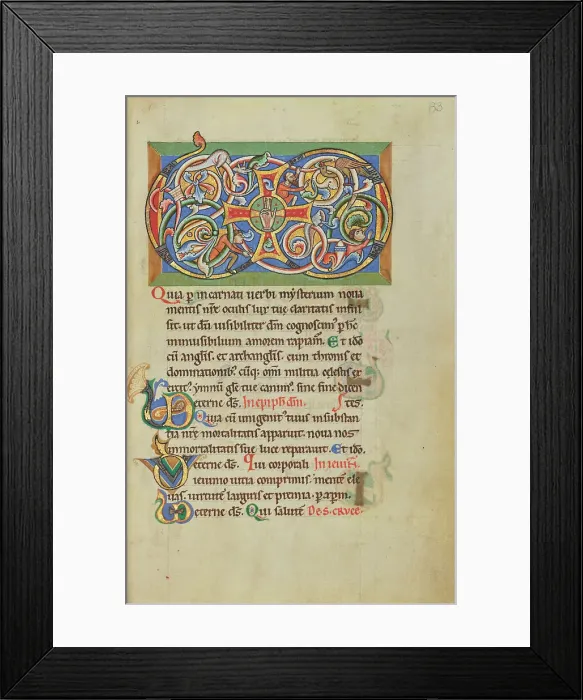 83
Quia p incarnati uerbi mysterium noua
mentis nrē oculis lux tue claritatis inful
sit. ut dū uisibiliter dm cognoscim⁹ p hc
inuisibilium amorem rapiam⁹. Et ido
cū anglis. et archanglis. cum thronis et
dominationib⁹. cūq; omi militia celestis ex
ercit⁹. ymnū gle tue canim⁹. sine fine dicen
eterne ds. In epiph dm. tes.
Quia cū unigenit⁹ tuus in substan
tia nrē mortalitatis apparuit. noua nos
immortalitatis sue luce reparauit. Et ido.
eterne ds. Qui corporali In ieiuii.
ieiunio uitia comprimis. mentē ele
uas. uirtutē largiris et premia. p xpm.
eterne ds. Qui salutē De s. cruce.